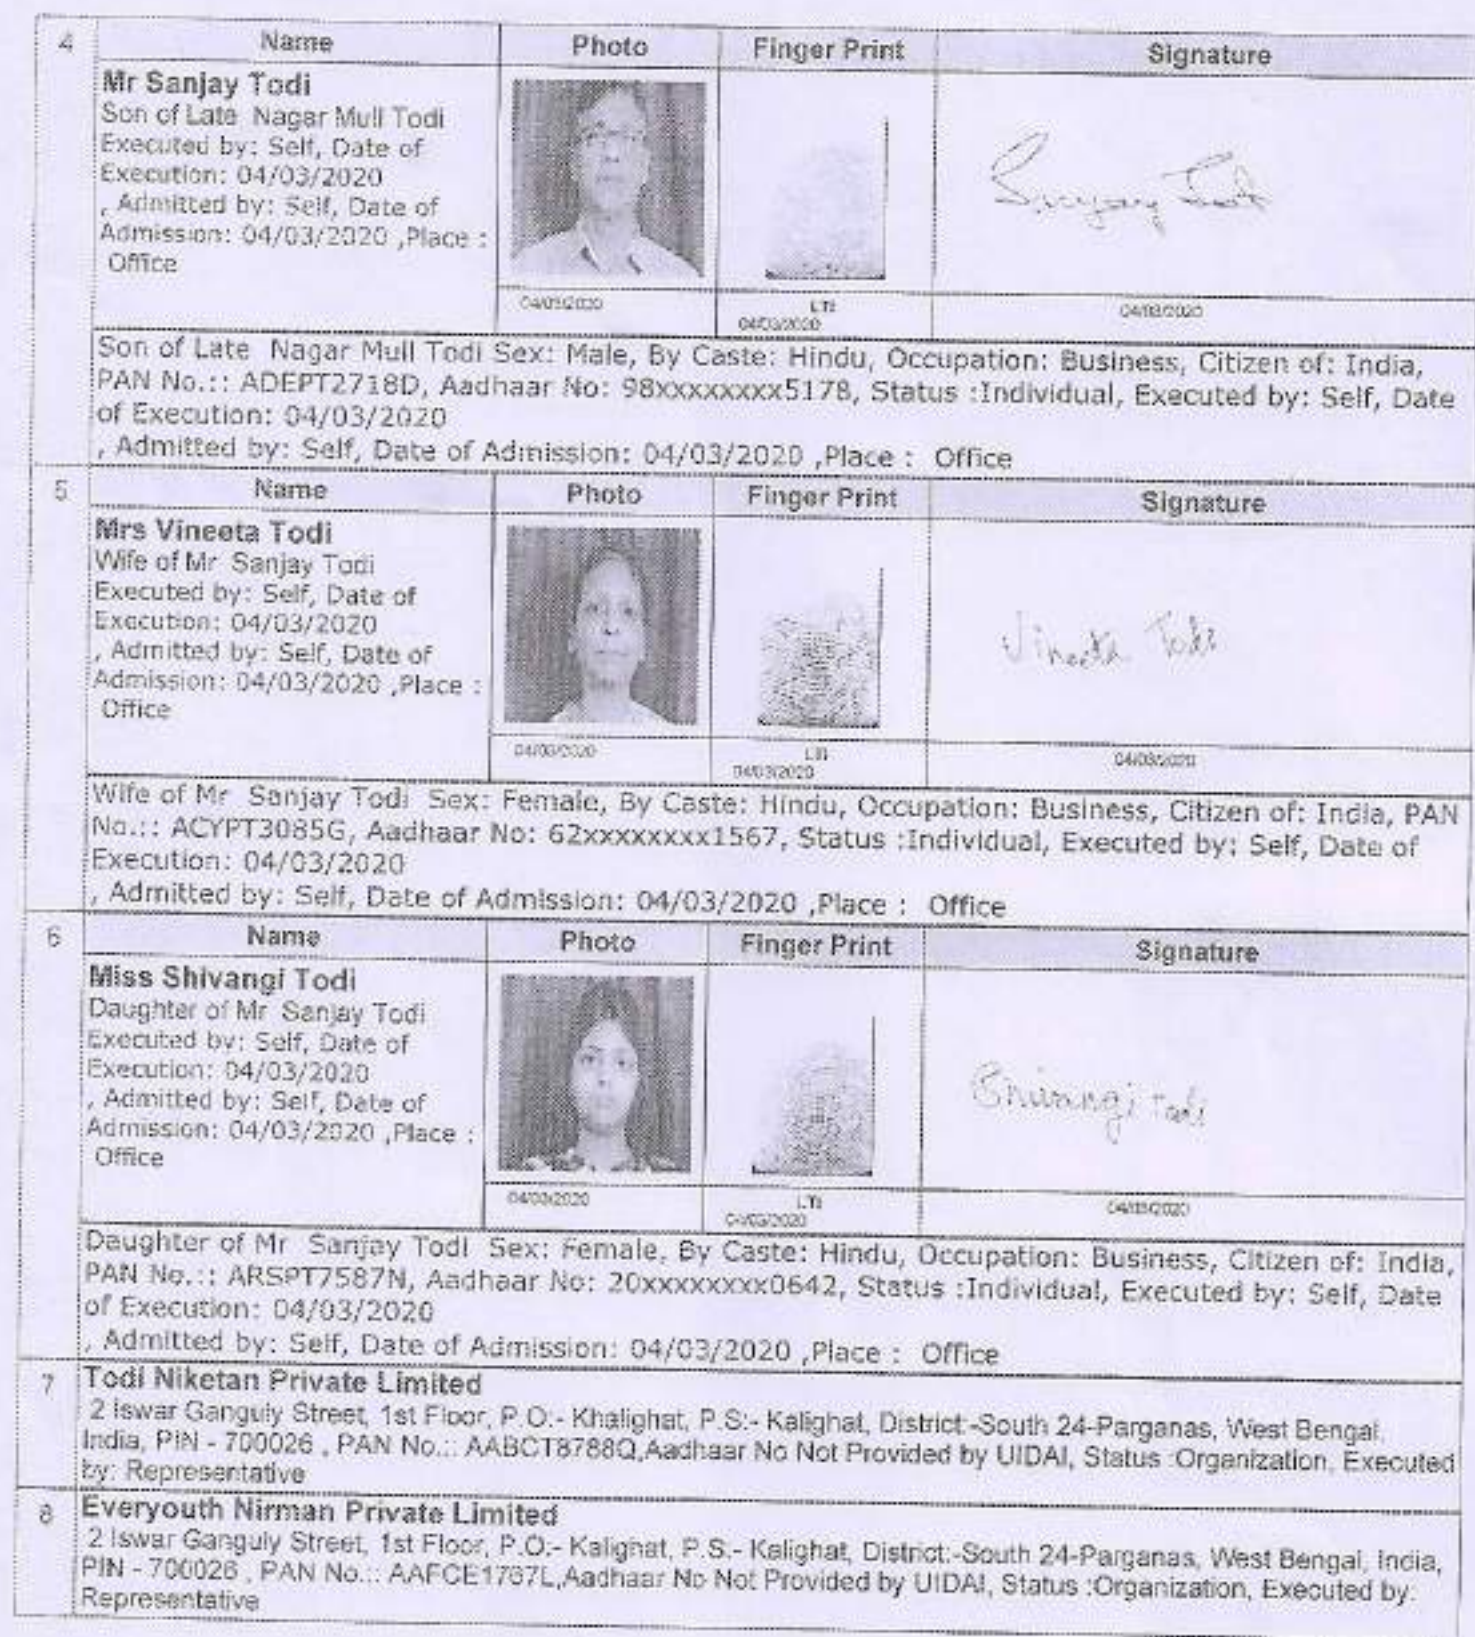 4 Name Photo Finger Print Signature
Mr Sanjay Todi
Son of Late Nagar Mull Todi
Executed by: Self, Date of
Execution: 04/03/2020
, Admitted by: Self, Date of
Admission: 04/03/2020 ,Place :
Office
Sanjay Todi
04/03/2020 LTI 04/03/2020
04/03/2020
Son of Late Nagar Mull Todi Sex: Male, By Caste: Hindu, Occupation: Business, Citizen of: India,
PAN No.:: ADEPT2718D, Aadhaar No: 98xxxxxxxx5178, Status :Individual, Executed by: Self, Date
of Execution: 04/03/2020
, Admitted by: Self, Date of Admission: 04/03/2020 ,Place : Office
5 Name Photo Finger Print Signature
Mrs Vineeta Todi
Wife of Mr Sanjay Todi
Executed by: Self, Date of
Execution: 04/03/2020
, Admitted by: Self, Date of
Admission: 04/03/2020 ,Place :
Office
Vineeta Todi
04/03/2020 LTI 04/03/2020
04/03/2020
Wife of Mr Sanjay Todi Sex: Female, By Caste: Hindu, Occupation: Business, Citizen of: India, PAN
No.:: ACYPT3085G, Aadhaar No: 62xxxxxxxx1567, Status :Individual, Executed by: Self, Date of
Execution: 04/03/2020
, Admitted by: Self, Date of Admission: 04/03/2020 ,Place : Office
6 Name Photo Finger Print Signature
Miss Shivangi Todi
Daughter of Mr Sanjay Todi
Executed by: Self, Date of
Execution: 04/03/2020
, Admitted by: Self, Date of
Admission: 04/03/2020 ,Place :
Office
Shivangi Todi
04/03/2020 LTI 04/03/2020
04/03/2020
Daughter of Mr Sanjay Todi Sex: Female, By Caste: Hindu, Occupation: Business, Citizen of: India,
PAN No.:: ARSPT7587N, Aadhaar No: 20xxxxxxxx0642, Status :Individual, Executed by: Self, Date
of Execution: 04/03/2020
, Admitted by: Self, Date of Admission: 04/03/2020 ,Place : Office
7 Todi Niketan Private Limited
2 Iswar Ganguly Street, 1st Floor, P.O:- Khalighat, P.S:- Kalighat, District:-South 24-Parganas, West Bengal,
India, PIN - 700026 , PAN No.:: AABCT8788Q,Aadhaar No Not Provided by UIDAI, Status :Organization, Executed
by: Representative
8 Everyouth Nirman Private Limited
2 Iswar Ganguly Street, 1st Floor, P.O:- Kalighat, P.S:- Kalighat, District:-South 24-Parganas, West Bengal, India,
PIN - 700026 , PAN No.:: AAFCE1767L,Aadhaar No Not Provided by UIDAI, Status :Organization, Executed by:
Representative